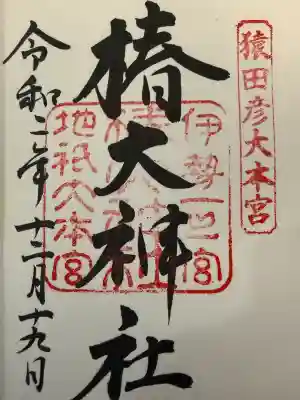 猿田彦大本宮
伊勢一宮
椿大神社
地祇大本宮
椿大神社
令和二年十二月十九日